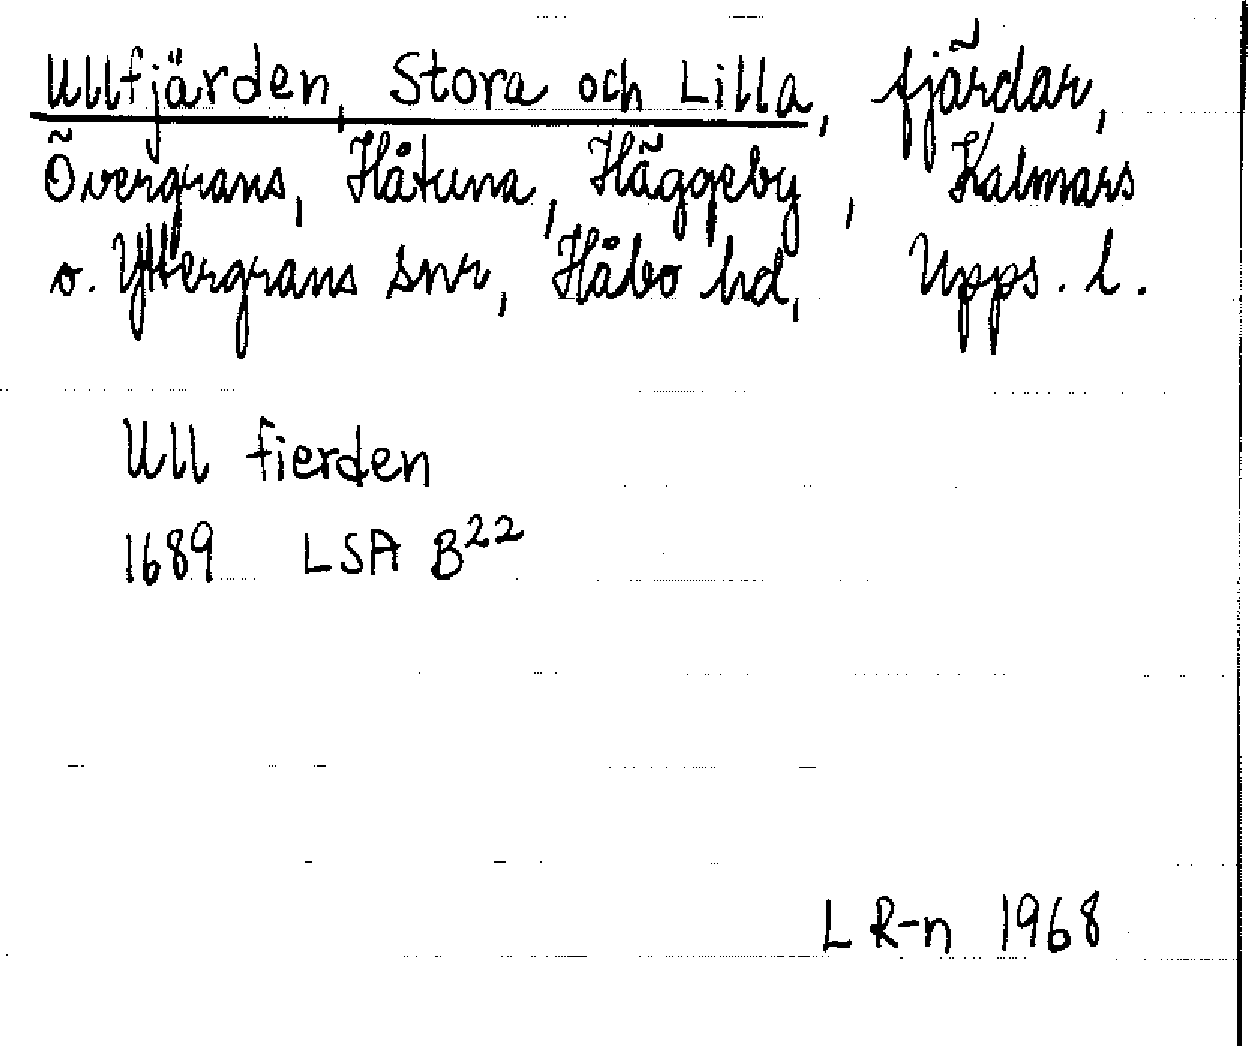 Ullfjärden, Stora och Lilla, fjärdar,
Övergrans, Håtuna, Häggeby, Kalmars
o. Yttergrans snr, Håbo hd, Upps. l.
Ull fierden
1689 LSA B²²
L R-n 1968